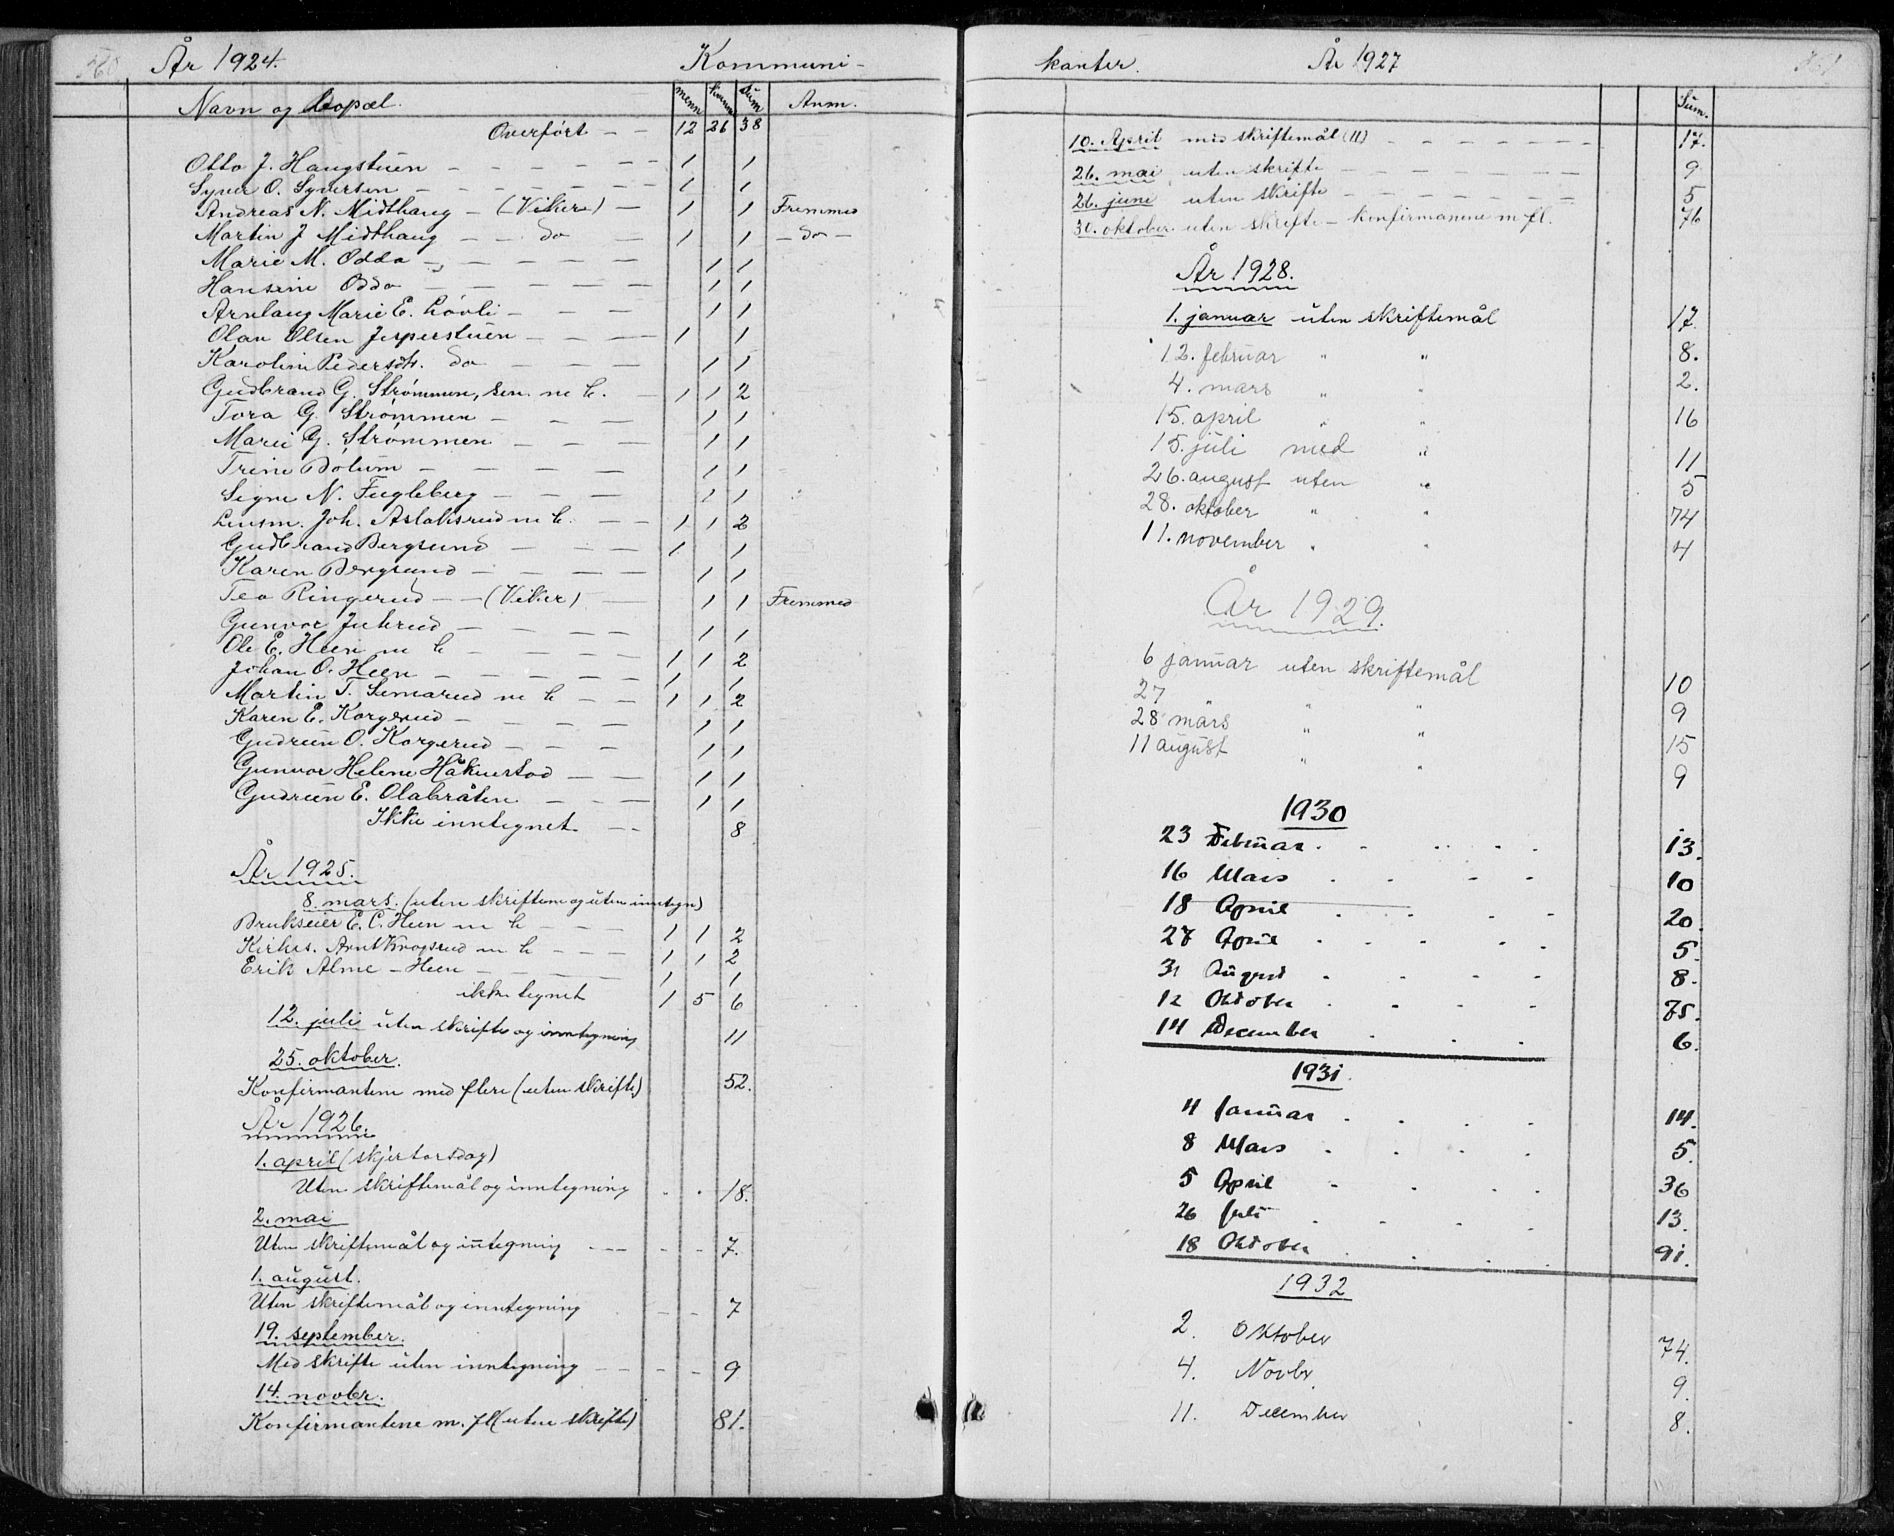 År 1924. Kommuni-
Navn og bopæl. menn kvinn Sum Anm.
Overført 12 26 38
Otto J. Haugstuen 1 1
Syver O. Syversen 1 1
Andreas N. Midthaug (Viker) 1 1 Fremmed
Martin J Midthaug do 1 1 do
Marie M. Odda 1 1
Hansine Odda 1 1
Arnlaug Marie E. Løvli 1 1
Olav Olsen Jesperstuen 1 1
Karoline Pedersdtr. do 1 1
Gudbrand G. Strømmen, sen. m h. 1 1 2
Tora G. Strømmen 1 1
Marie G. Strømmen 1 1
Trine Bölum 1 1
Signe N. Fugleberg 1 1
Lensm. Joh. Aslaksrud m h. 1 1 2
Gudbrand Bergsund 1 1
Karen Bergsund 1 1
Tea Ringerud (Viker) 1 1 Fremmed
Gunvor Juhrud 1 1
Ole E. Heen m h 1 1 2
Johan O. Heen 1 1
Martin T. Semerud m h 1 1 2
Karen E. Korgerud 1 1
Gudrun O. Korgerud 1 1
Gunvor Helene Håkenstad 1 1
Gudrun E. Olabråten 1 1
Ikke inntegnet 8
År 1925.
8. mars. (uten skriftem og uten inntegn)
Brukseier E. C. Heen m h 1 1 2
Kirkes. Arnt Krogsrud m h 1 1 2
Erik Alme - Heen 1 1
ikke tegnet 1 5 6
12. juli uten skrifte og inntegning 11
25. oktober.
Konfirmantene med flere (uten skrifte) 52.
År 1926.
1. april (skjertorsdag)
Uten skriftemål og inntegning 18.
2. mai
Uten skriftemål og inntegning 7.
1. august.
Uten skriftemål og inntegning 7
19. september.
Med skrifte uten inntegning 9
14. novbr.
Konfirmantene m. fl (uten skrifte) 81.
kanter. År 1927
Sum.
10. April med skriftemål (11) 17.
26. mai uten skrifte 9
26. juni uten skrifte 5
30. oktober uten skrifte - konfirmanene m fl. 76
År 1928.
1. januar uten skriftemål 17.
12. februar " " 8.
4. mars " " 2.
15. april " " 16
15. juli med " 11
26. august uten " 5
28. oktober " " 74
11. november " " 4
År 1929.
6 januar uten skriftemål 10
27 " " 9
28 mars " " 15
11 august " " 9
1930
23 Februar. 13.
16 Mars 10
18 April 20.
27 April 5.
31 August 8.
12 Oktober 75.
14 December 6.
1931.
4 Januar 14.
8 Mars 5.
5 April 36
26 Juli 13.
18 Oktober 91.
1932
2. Oktober 74.
4. Novbr 9.
11. December 8.